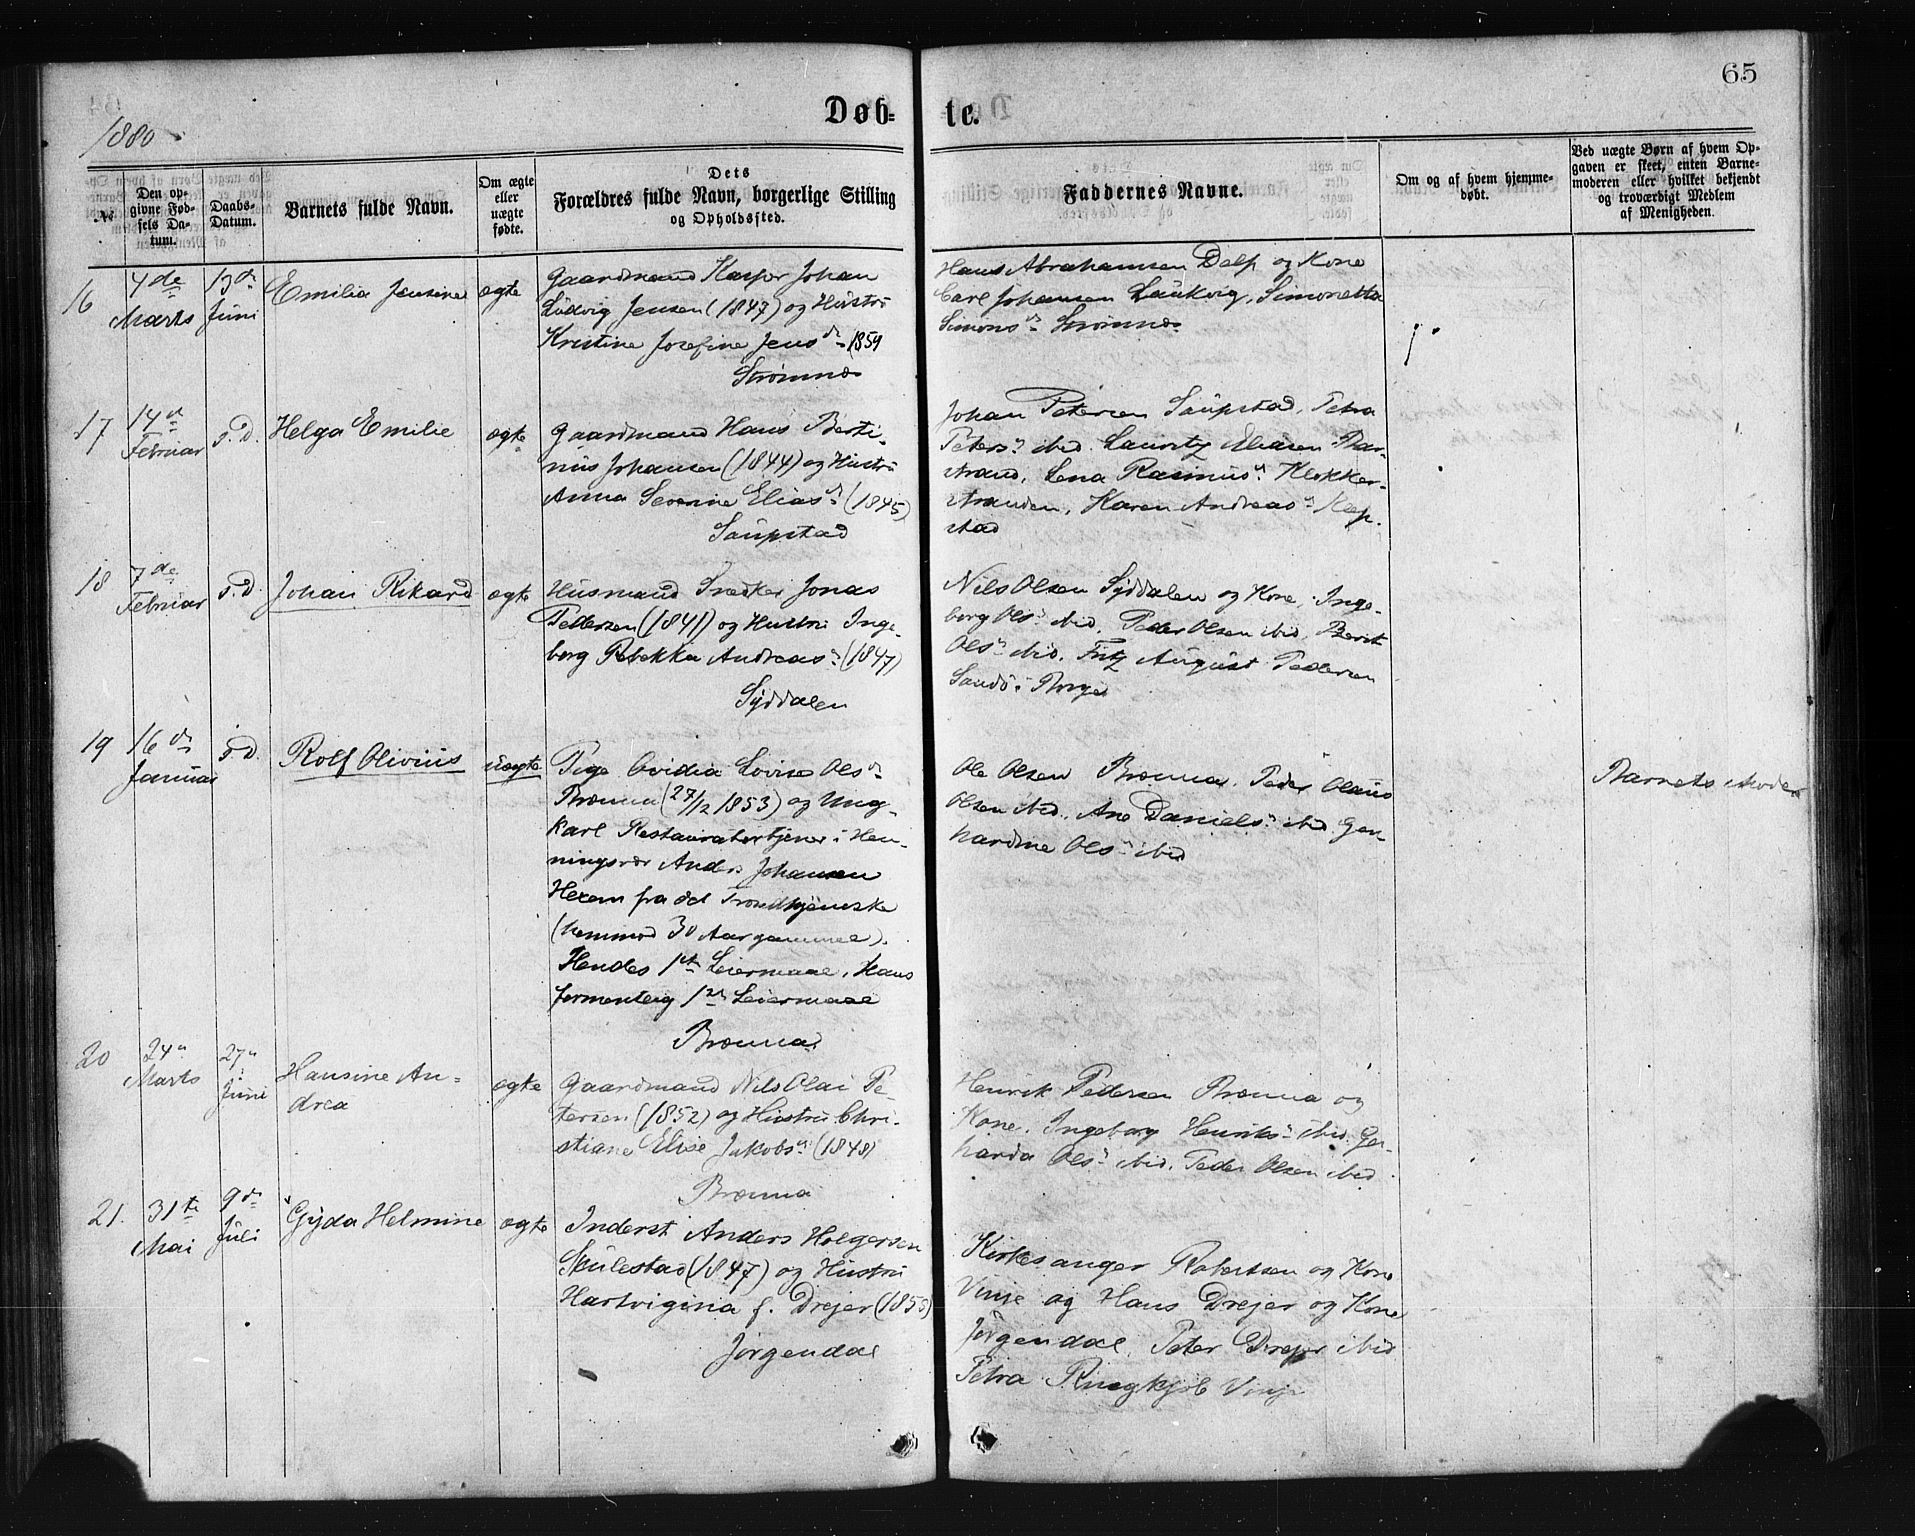 65
Døb=
te.
1880
No.
Den op-
givne Fød-
sels Da-
tum.
Daabs-
Datum.
Barnets fulde Navn.
Om ægte
eller
uægte
fødte.
Dets
Forældres fulde Navn, borgerlige Stilling
og Opholdssted.
Faddernes Navne.
Om og af hvem hjemme-
døbt.
Ved uægte Børn af hvem Op-
gaven er skeet, enten Barne-
moderen eller hvilket bekjendt
og troværdigt Medlem
af Menigheden.
16
4de
Marts
13de
Juni
Emilia Jensine
ægte
Gaardmand Kasper Johan
Ludvig Jensen (1847) og Hustru
Kristine Josefine Jensdr 1859
Strømnæs
Hans Abrahamsen Dalp og Kone
Carl Johansen Laukvig, Simonetta
Simonsdr Strømnæs
17
14de
Februar
s. D.
Helga Emilie
ægte
Gaardmand Hans Berti-
nus Johansen (1844) og Hustru
Anna Severine Eliasdr (1845)
Saupstad
Johan Petersen Saupstad, Petra
Petersdr ibid. Lauritz Eliasen Bar-
strand, Lena Rasmusdr Klokker-
stranden, Karen Andreasdr Rep-
stad
18
7de
Februar
s. D.
Johan Rikard
ægte
Husmand Snedker Jonas
Pedersen (1841) og Hustru Inge-
borg Rebekka Andreasdr (1847)
Syddalen
Nils Olsen Syddalen og Kone, Inge-
borg Olsdr ibid, Peder Olsen ibid, Berit
Olsdr ibid, Fritz August Pedersen
Sandø i Borge
19
16de
Januar
s. D.
Rolf Olivius
uægte
Pige Ovidia Lovise Olsdr
Brænna (27/12 1853) og Ung-
karl Restauratørtjener i Hen-
ningsvær Anders Johansen
Hexem fra det Trondhjemske
(henimod 30 Aar gammel).
Hendes 1ste Leiermaal, Hans
formentlig 1ste Leiermaal
Brænna
Ole Olsen Brænna, Peder Olaus
Olsen ibid, Ane Danielsdr ibid Ger-
hardine Olsdr ibid
Barnets Moder
20
24de
Marts
27de
Juni
Hansine An-
drea
ægte
Gaardmand Nils Olai Pe-
tersen (1852) og Hustru Chri-
stiane Elise Jakobsdr (1848)
Brænna
Henrik Pettersen Brænna og
Kone, Ingeborg Henriksdr ibid, Ger-
harda Olsdr ibid, Peder Olsen ibid
21.
31te
Mai
9de
Juli
Gyda Helmine
ægte
Inderst Anders Holgersen
Skulestad (1847) og Hustru
Hartvigina f. Drejer (1855)
Jørgendal
Kirkesanger Robertsen og Kone
Vinje og Hans Drejer og Kone
Jørgendal, Peter Drejer ibid
Petra Ringkjøb Vinje